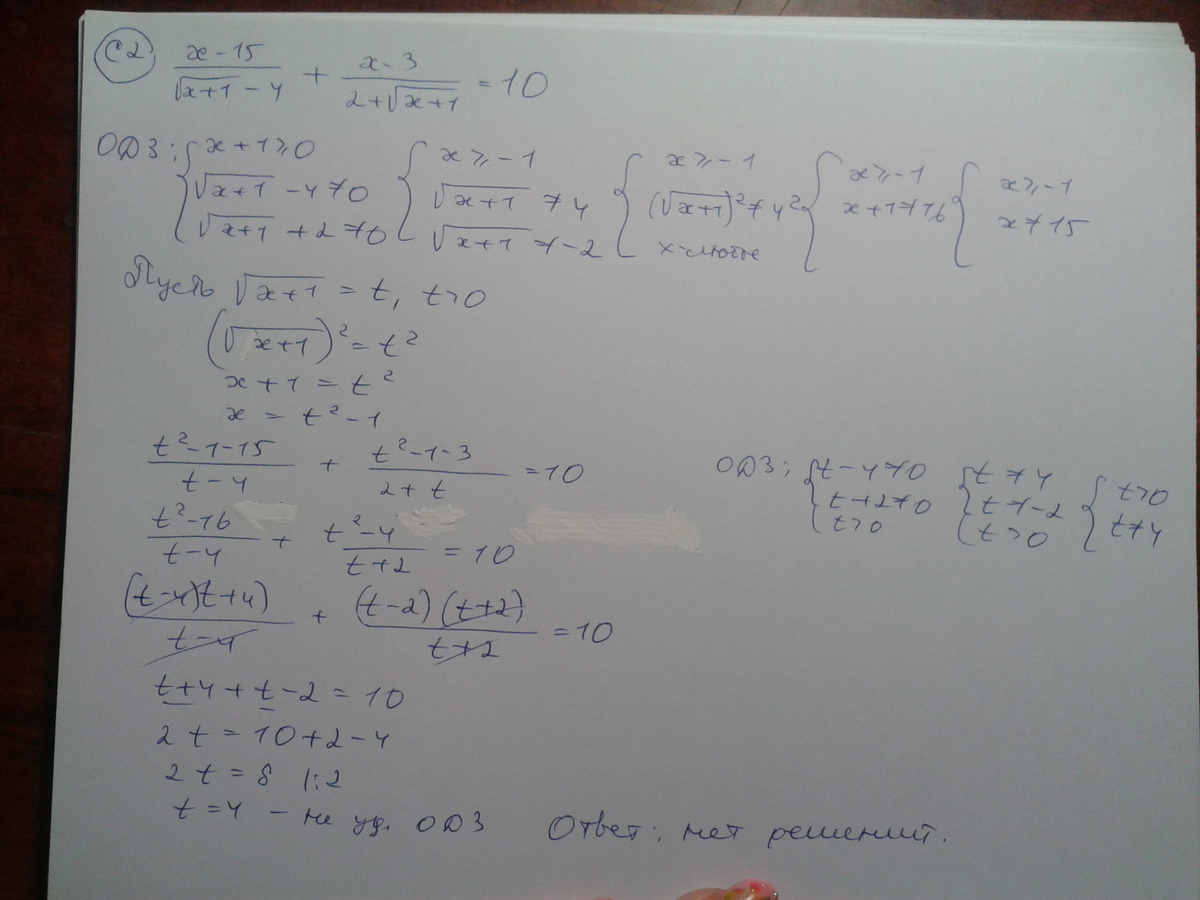 С2 (x-15)/(√(x+1) - 4) + (x-3)/(2+√(x+1)) = 10
ОДЗ: { x+1⩾0 { x⩾-1 { x⩾-1 { x⩾-1 { x⩾-1
√(x+1) - 4 ≠ 0 √(x+1) ≠ 4 (√(x+1))² ≠ 4² x+1 ≠ 16 x ≠ 15
√(x+1) + 2 ≠ 0 √(x+1) ≠ -2 x-любое
Пусть √(x+1) = t, t>0
(√(x+1))² = t²
x+1 = t²
x = t²-1
(t²-1-15)/(t-4) + (t²-1-3)/(2+t) = 10
ОДЗ: { t-4≠0 { t≠4 { t>0
t+2≠0 t≠-2 t≠4
t>0 t>0
(t²-16)/(t-4) + (t²-4)/(t+2) = 10
((t-4)(t+4))/(t-4) + ((t-2)(t+2))/(t+2) = 10
t+4+t-2 = 10
2t = 10+2-4
2t = 8 |:2
t=4 - не уд. ОДЗ Ответ: нет решений.